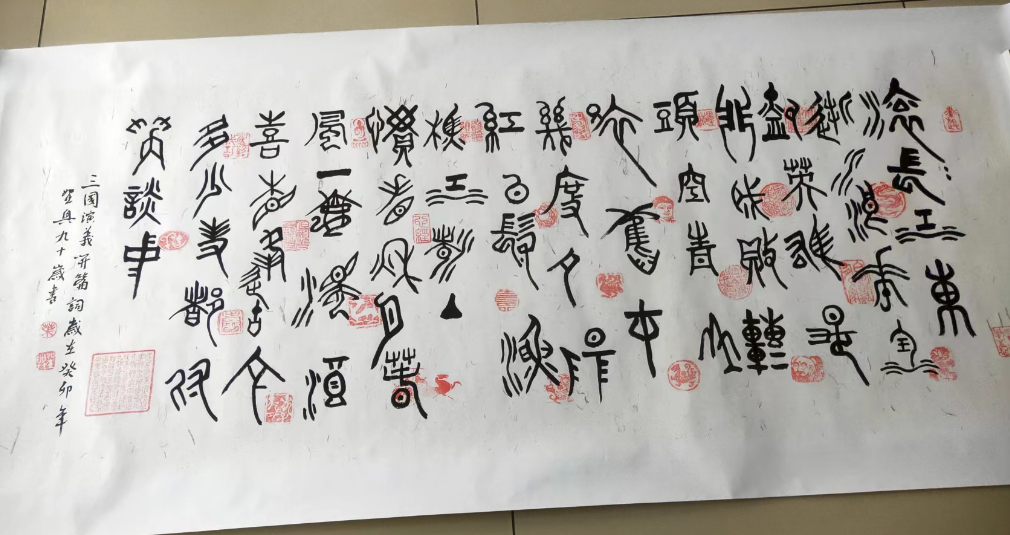 滚〻長江東
逝水浪華淘
盡英雄是
非成敗轉
頭空青山
依舊在
幾度夕陽
紅白髮漁
樵江渚上
慣看秋月春
風一壺濁酒
喜相逢古今
多少事都付
笑談中
三國演義開篇詞歲在癸卯年
興九十歲書